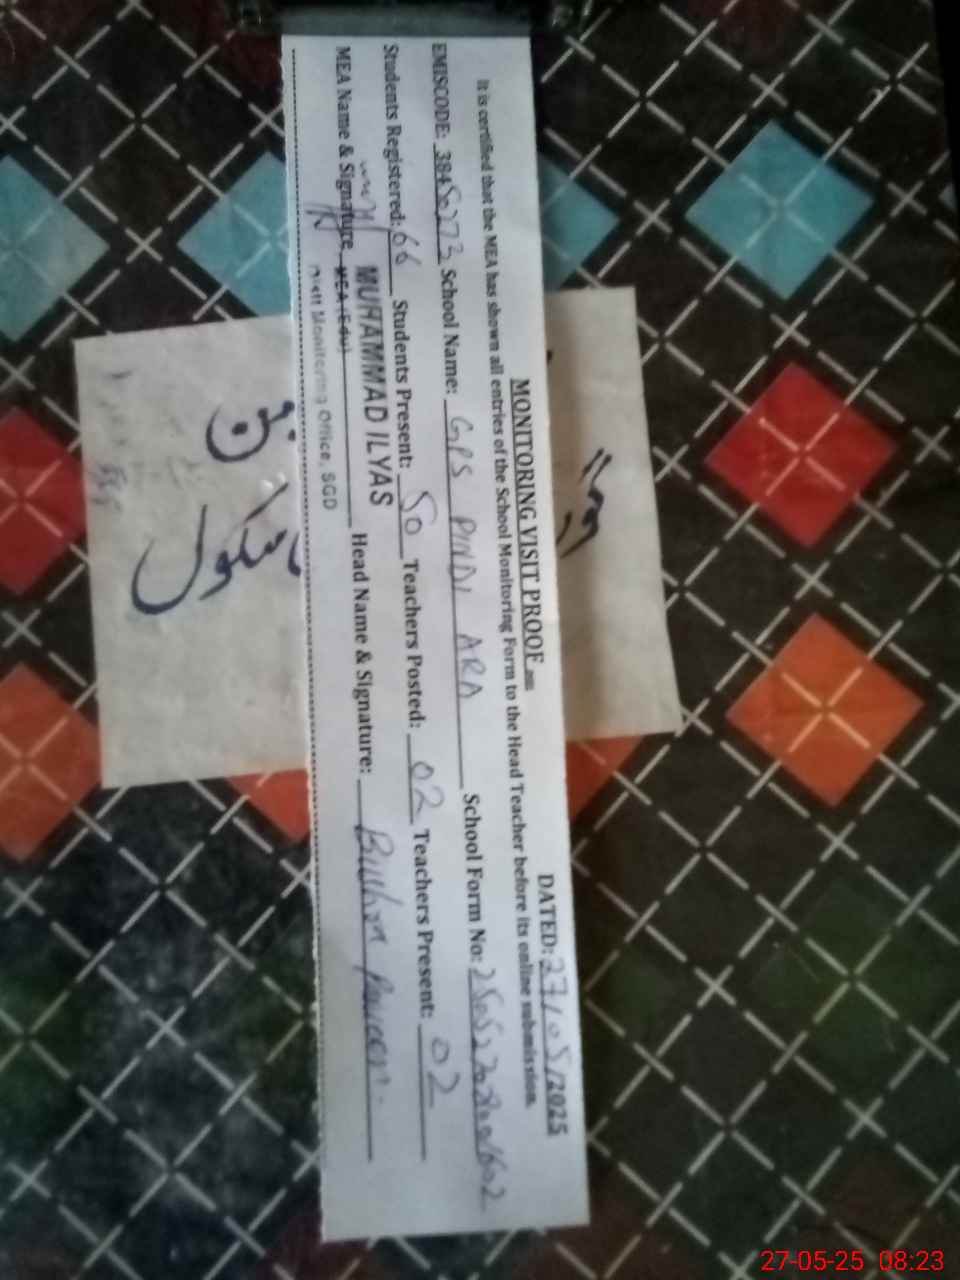 MONITORING VISIT PROOF DATED: 27/05/2025
It is certified that the MEA has shown all entries of the School Monitoring Form to the Head Teacher before its online submission.
EMISCODE: 38450273 School Name: GPS PINDI ARA School Form No:
Students Registered: 66 Students Present: 50 Teachers Posted: 02 Teachers Present: 02
MEA Name & Signature MUHAMMAD ILYAS Head Name & Signature: Bushra
MEA (Edu)
Monitoring Office, SGD
سکول
27-05-25 08:23